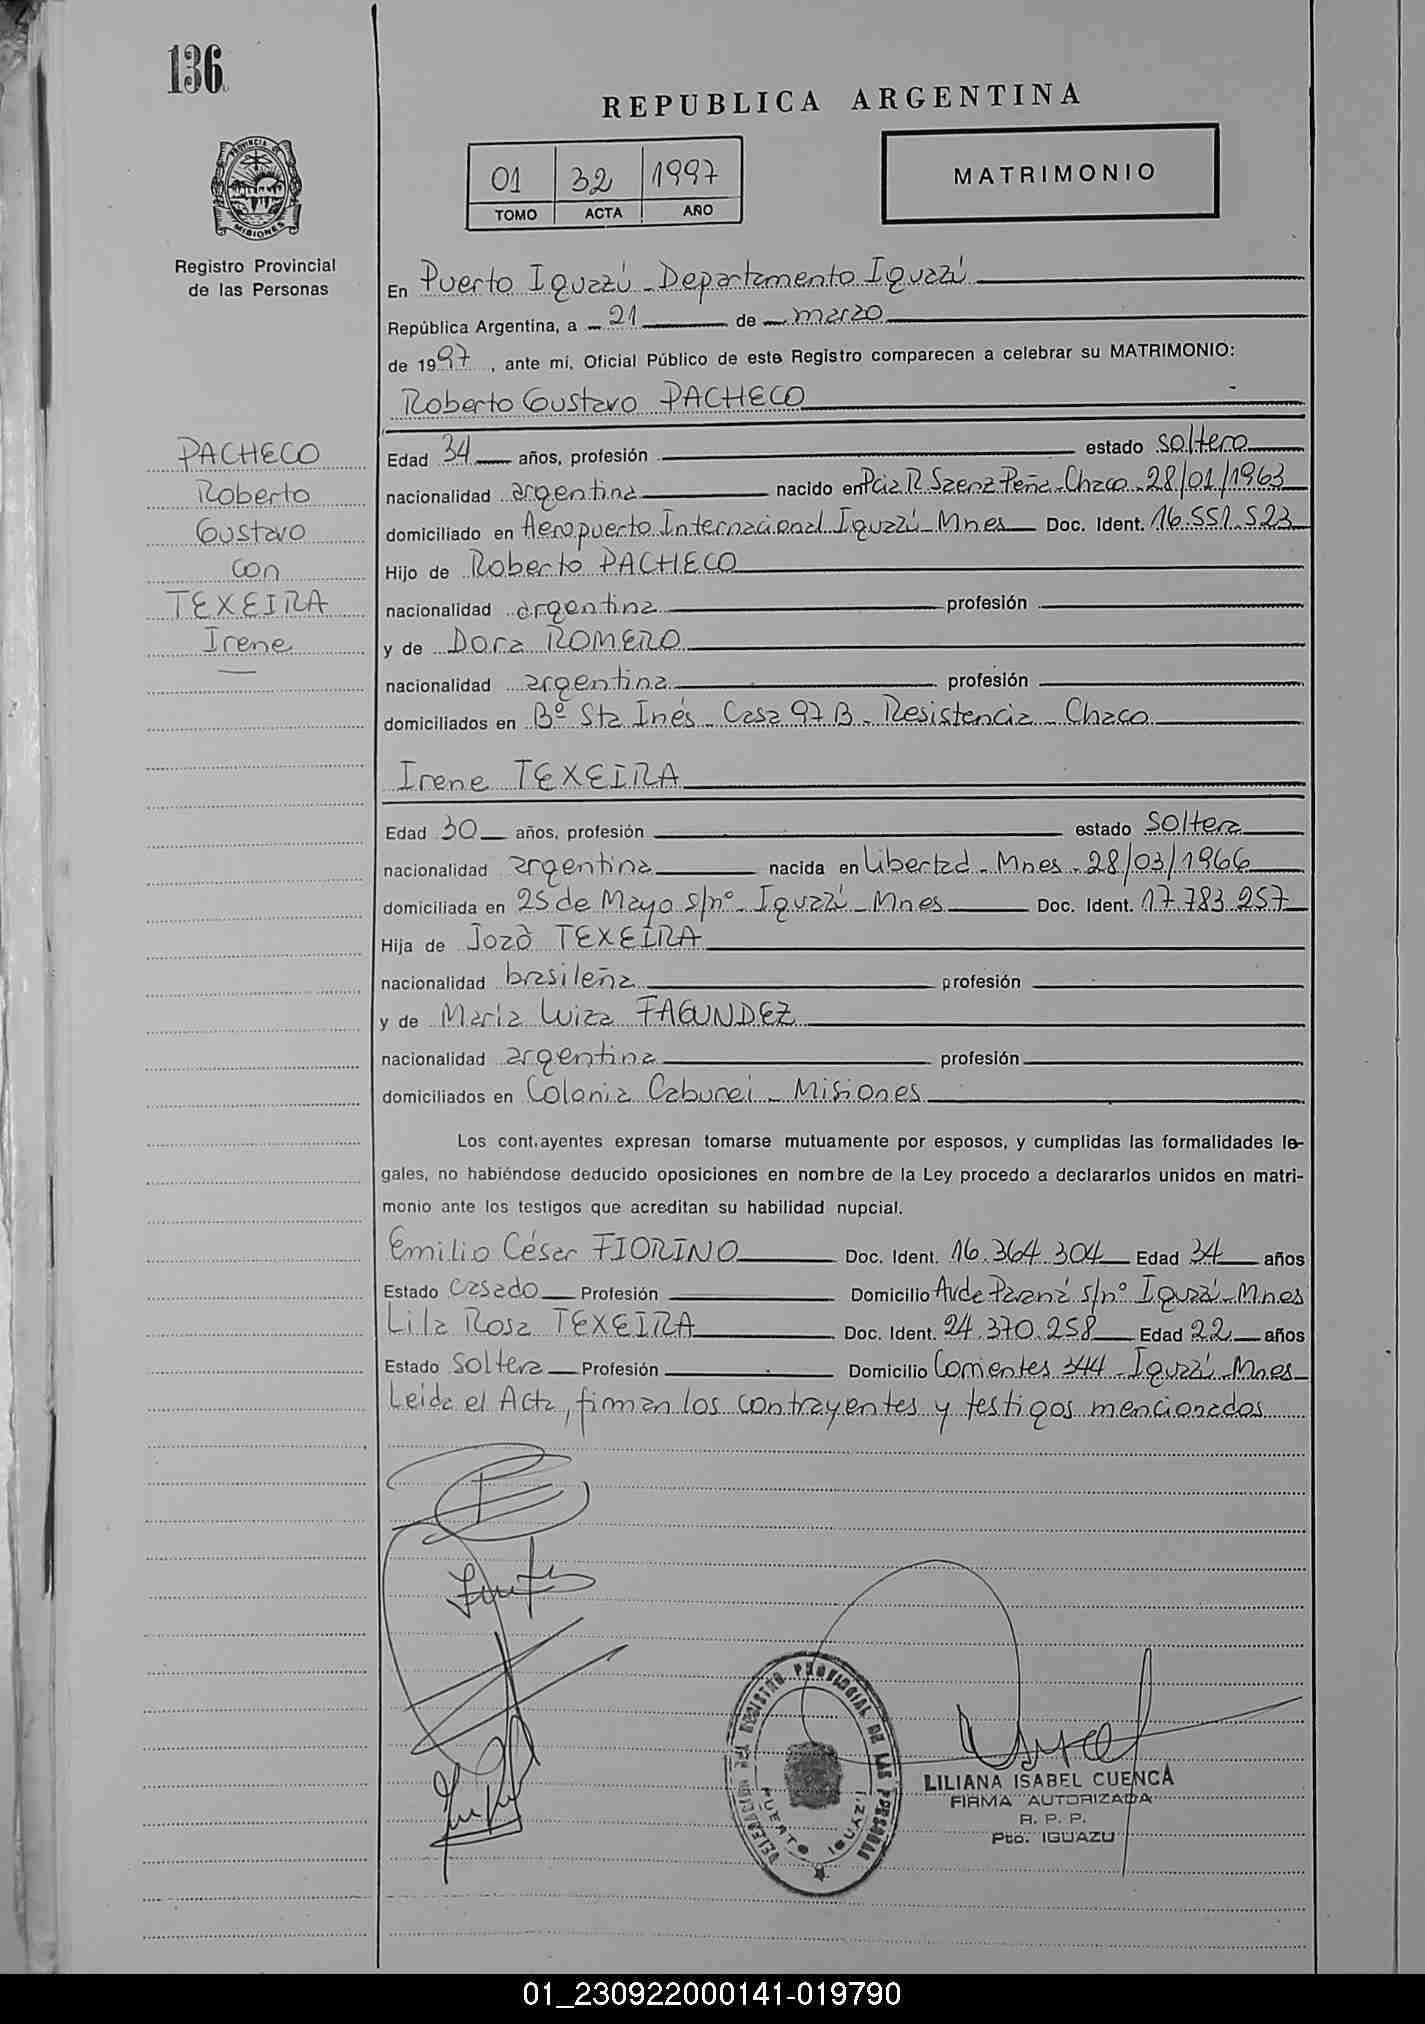 136
REPUBLICA ARGENTINA
01 32 1997
TOMO ACTA AÑO
MATRIMONIO
PROVINCIA DE
MISIONES
Registro Provincial
de las Personas
En Puerto Iguazú - Departamento Iguazú
República Argentina, a 21 de marzo
de 1997, ante mí, Oficial Público de este Registro comparecen a celebrar su MATRIMONIO:
Roberto Gustavo PACHECO
PACHECO
Roberto
Gustavo
con
TEXEIRA
Irene
Edad 34 años, profesión estado soltero
nacionalidad argentina nacido en Pcia R Saenz Peña - Chaco - 28/01/1963
domiciliado en Aeropuerto Internacional Iguazú - Mnes Doc. Ident. 16.551.523
Hijo de Roberto PACHECO
nacionalidad argentina profesión
y de Dora ROMERO
nacionalidad argentina profesión
domiciliados en Bº Sta Inés - Casa 97 B - Resistencia - Chaco
Irene TEXEIRA
Edad 30 años, profesión estado soltera
nacionalidad argentina nacida en Libertad - Mnes - 28/03/1966
domiciliada en 25 de Mayo s/nº - Iguazú - Mnes Doc. Ident. 17.783.257
Hija de Jozò TEXEIRA
nacionalidad brasileña profesión
y de María Luiza FAGUNDEZ
nacionalidad argentina profesión
domiciliados en Colonia Caburei - Misiones
Los contrayentes expresan tomarse mutuamente por esposos, y cumplidas las formalidades le-
gales, no habiéndose deducido oposiciones en nombre de la Ley procedo a declararlos unidos en matri-
monio ante los testigos que acreditan su habilidad nupcial.
Emilio César FIORINO Doc. Ident. 16.364.304 Edad 34 años
Estado casado Profesión Domicilio Av de Paraná s/nº Iguazú - Mnes
Lila Rosa TEXEIRA Doc. Ident. 24.370.258 Edad 22 años
Estado soltera Profesión Domicilio Corrientes 344 - Iguazú - Mnes
Leida el Acta, firman los contrayentes y testigos mencionados
REGISTRO PROVINCIAL DE LAS PERSONAS
PUERTO IGUAZÚ
LILIANA ISABEL CUENCA
FIRMA AUTORIZADA
R. P. P.
Pto. IGUAZU
01_230922000141-019790